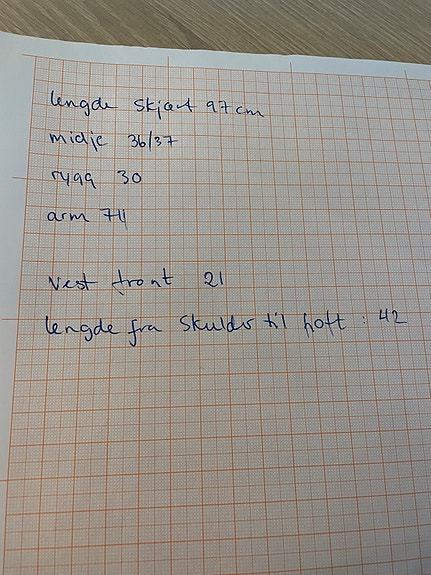 lengde skjørt 97 cm
midje 36/37
rygg 30
arm 74
vest front 21
lengde fra skulder til hoft : 42